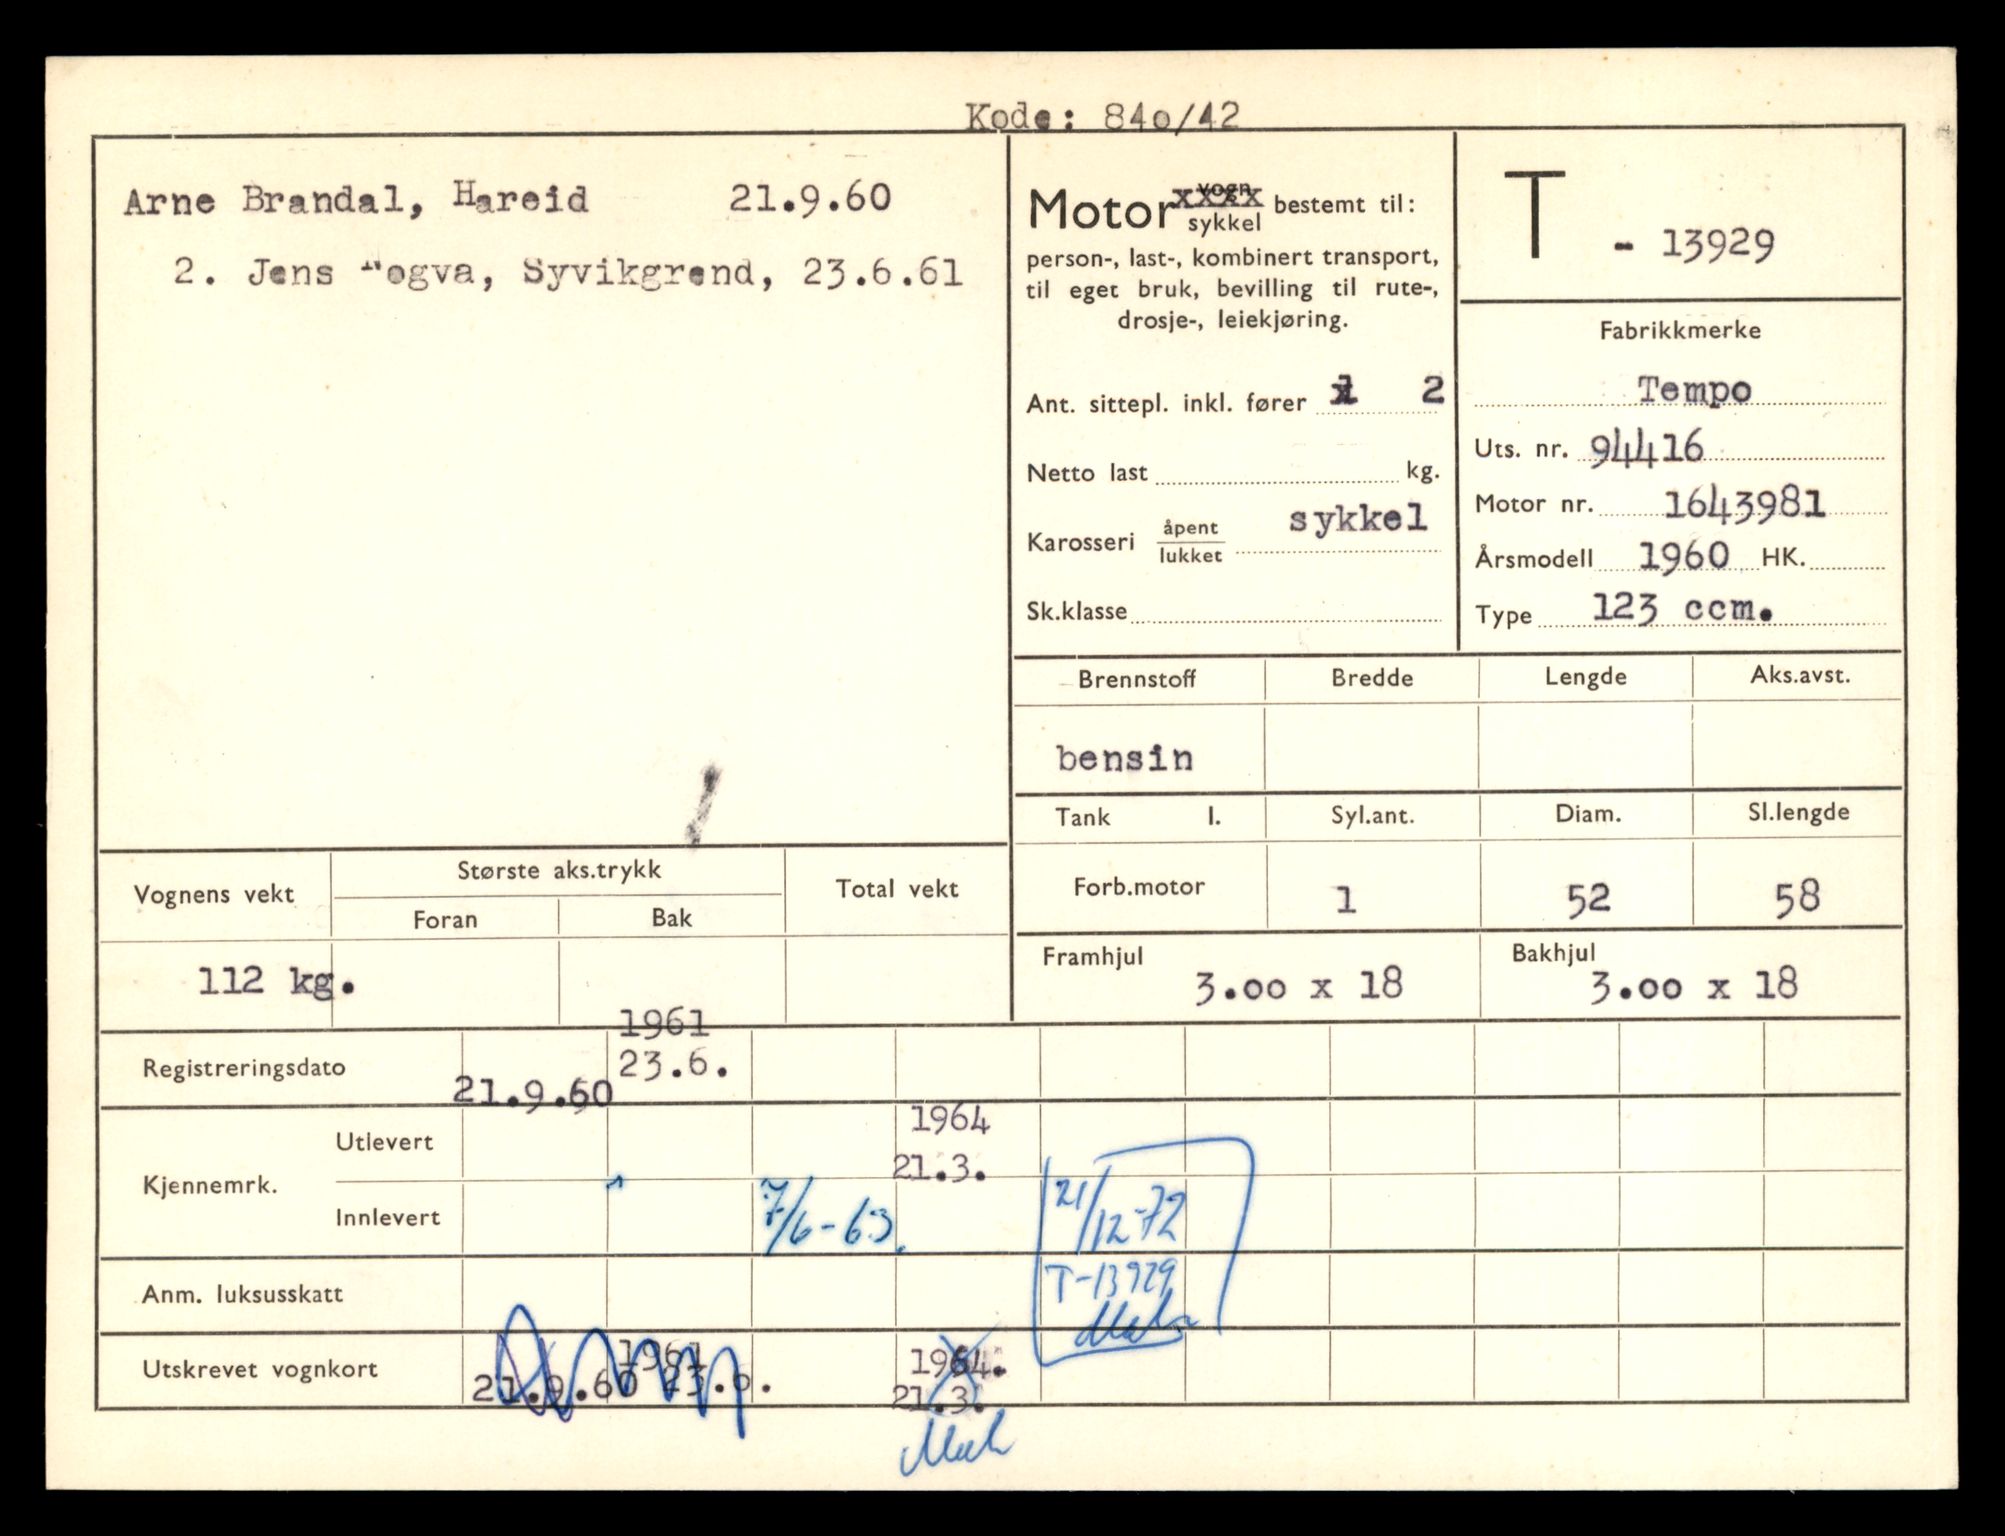 Kode: 840/42
Arne Brandal, Hareid 21.9.60
2. Jens Rogva, Syvikgrend, 23.6.61
Motor vogn xxxx
sykkel bestemt til:
person-, last-, kombinert transport,
til eget bruk, bevilling til rute-,
drosje-, leiekjøring.
Ant. sittepl. inkl. fører 2
Netto last kg.
Karosseri åpent
lukket sykkel
Sk.klasse
T - 13929
Fabrikkmerke
Tempo
Uts. nr. 94416
Motor nr. 1643981
Årsmodell 1960 HK.
Type 123 ccm.
Brennstoff Bredde Lengde Aks.avst.
bensin
Tank l. Syl.ant. Diam. Sl.lengde
Forb.motor 1 52 58
Framhjul 3.00 x 18 Bakhjul 3.00 x 18
Vognens vekt Største aks.trykk Total vekt
Foran Bak
112 kg.
1961
Registreringsdato 21.9.60 23.6.
Kjennemrk.
Utlevert 1964
21.3.
Innlevert 7/6-63. 21/12-72
T-13929
Anm. luksusskatt
Utskrevet vognkort 21.9.60 1961 23.6. 1964. 21.3.